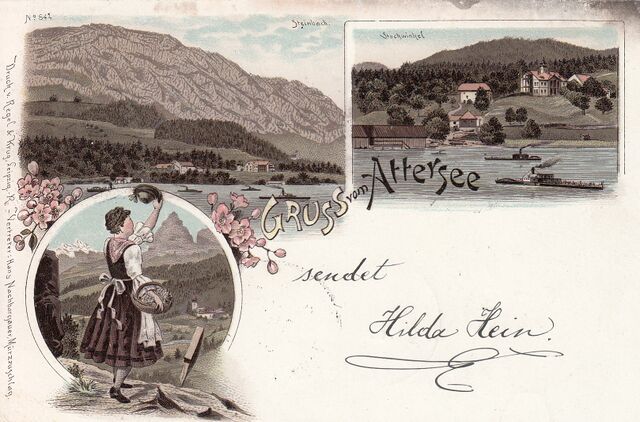 No 842
Steinbach.
Stockwinkel
GRUSS vom Attersee
sendet
Hilda Hein.
Druck v. Regel & Krug, Leipzig, R. – Vertreter: Hans Nachbargauer, Mürzzuschlag.